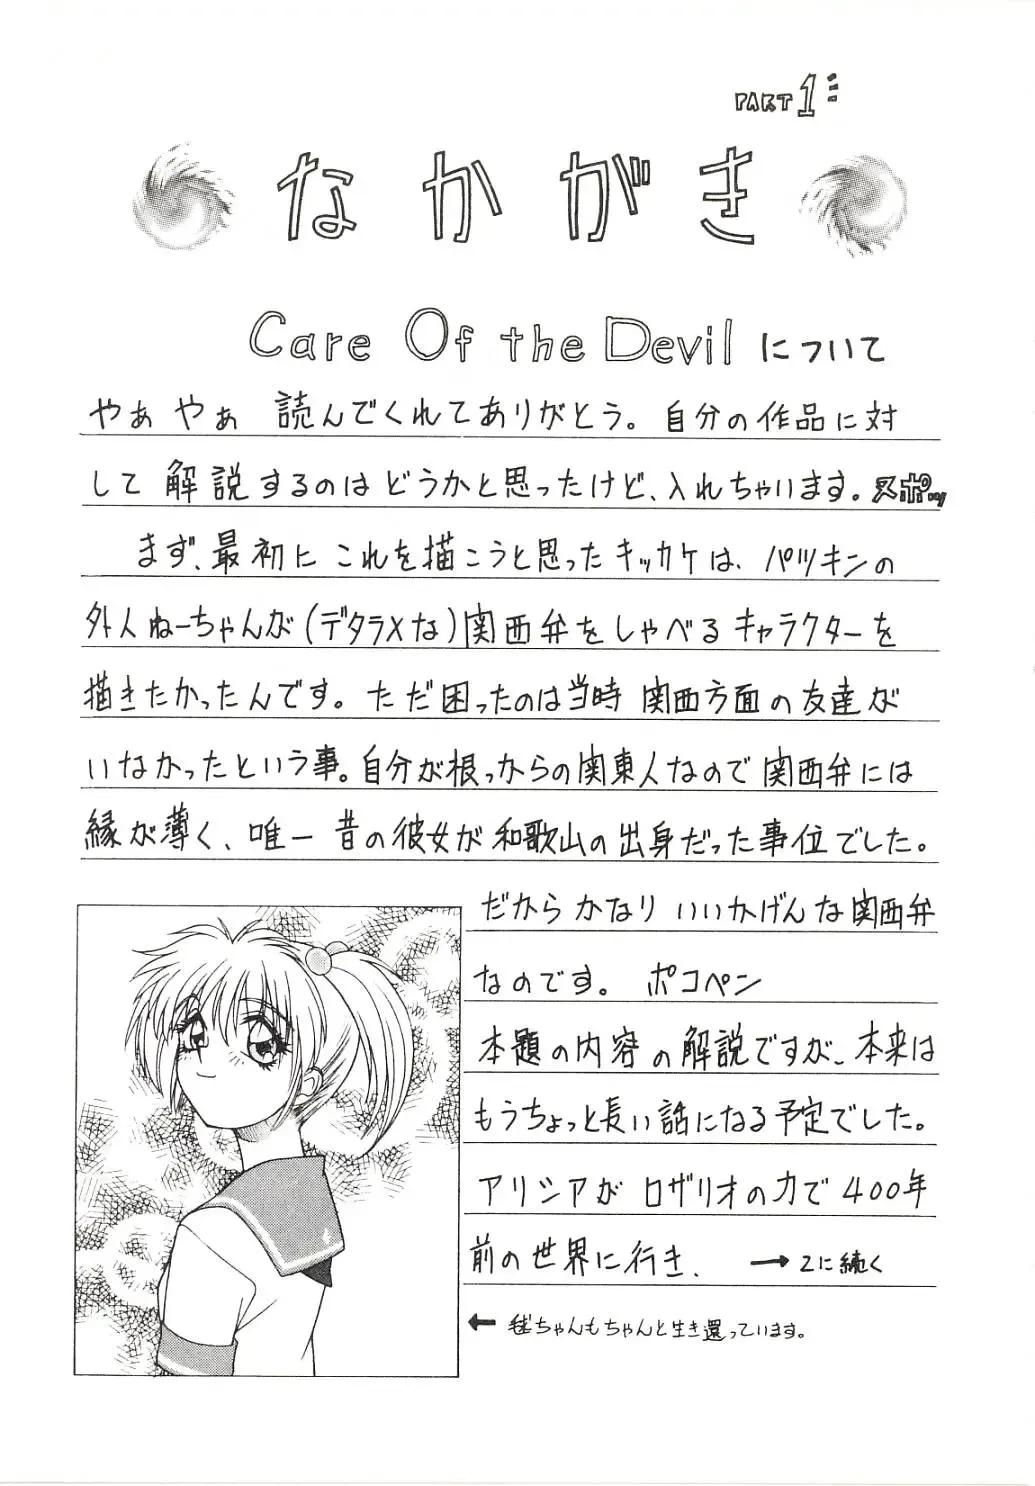 PART 1:
なかがき
Care Of the Devil について
やぁ やぁ 読んでくれてありがとう。自分の作品に対
して 解説するのは どうかと思ったけど、入れちゃいます。ズポッ
まず、最初に これを描こうと思ったキッカケは、パツキンの
外人ねーちゃんが(デタラメな)関西弁をしゃべる キャラクターを
描きたかったんです。ただ困ったのは当時 関西方面の友達が
いなかったという事。自分が根っからの関東人なので関西弁には
縁が薄く、唯一 昔の彼女が 和歌山の出身だった事位でした。
だから かなり いいかげんな関西弁
なのです。 ポコペン
本題の内容の解説ですが、本来は
もうちょっと長い話になる予定でした。
アリシアが ロザリオの力で 400年
前の世界に行き、 → 2に続く
← ちゃんもちゃんと生き還っています。